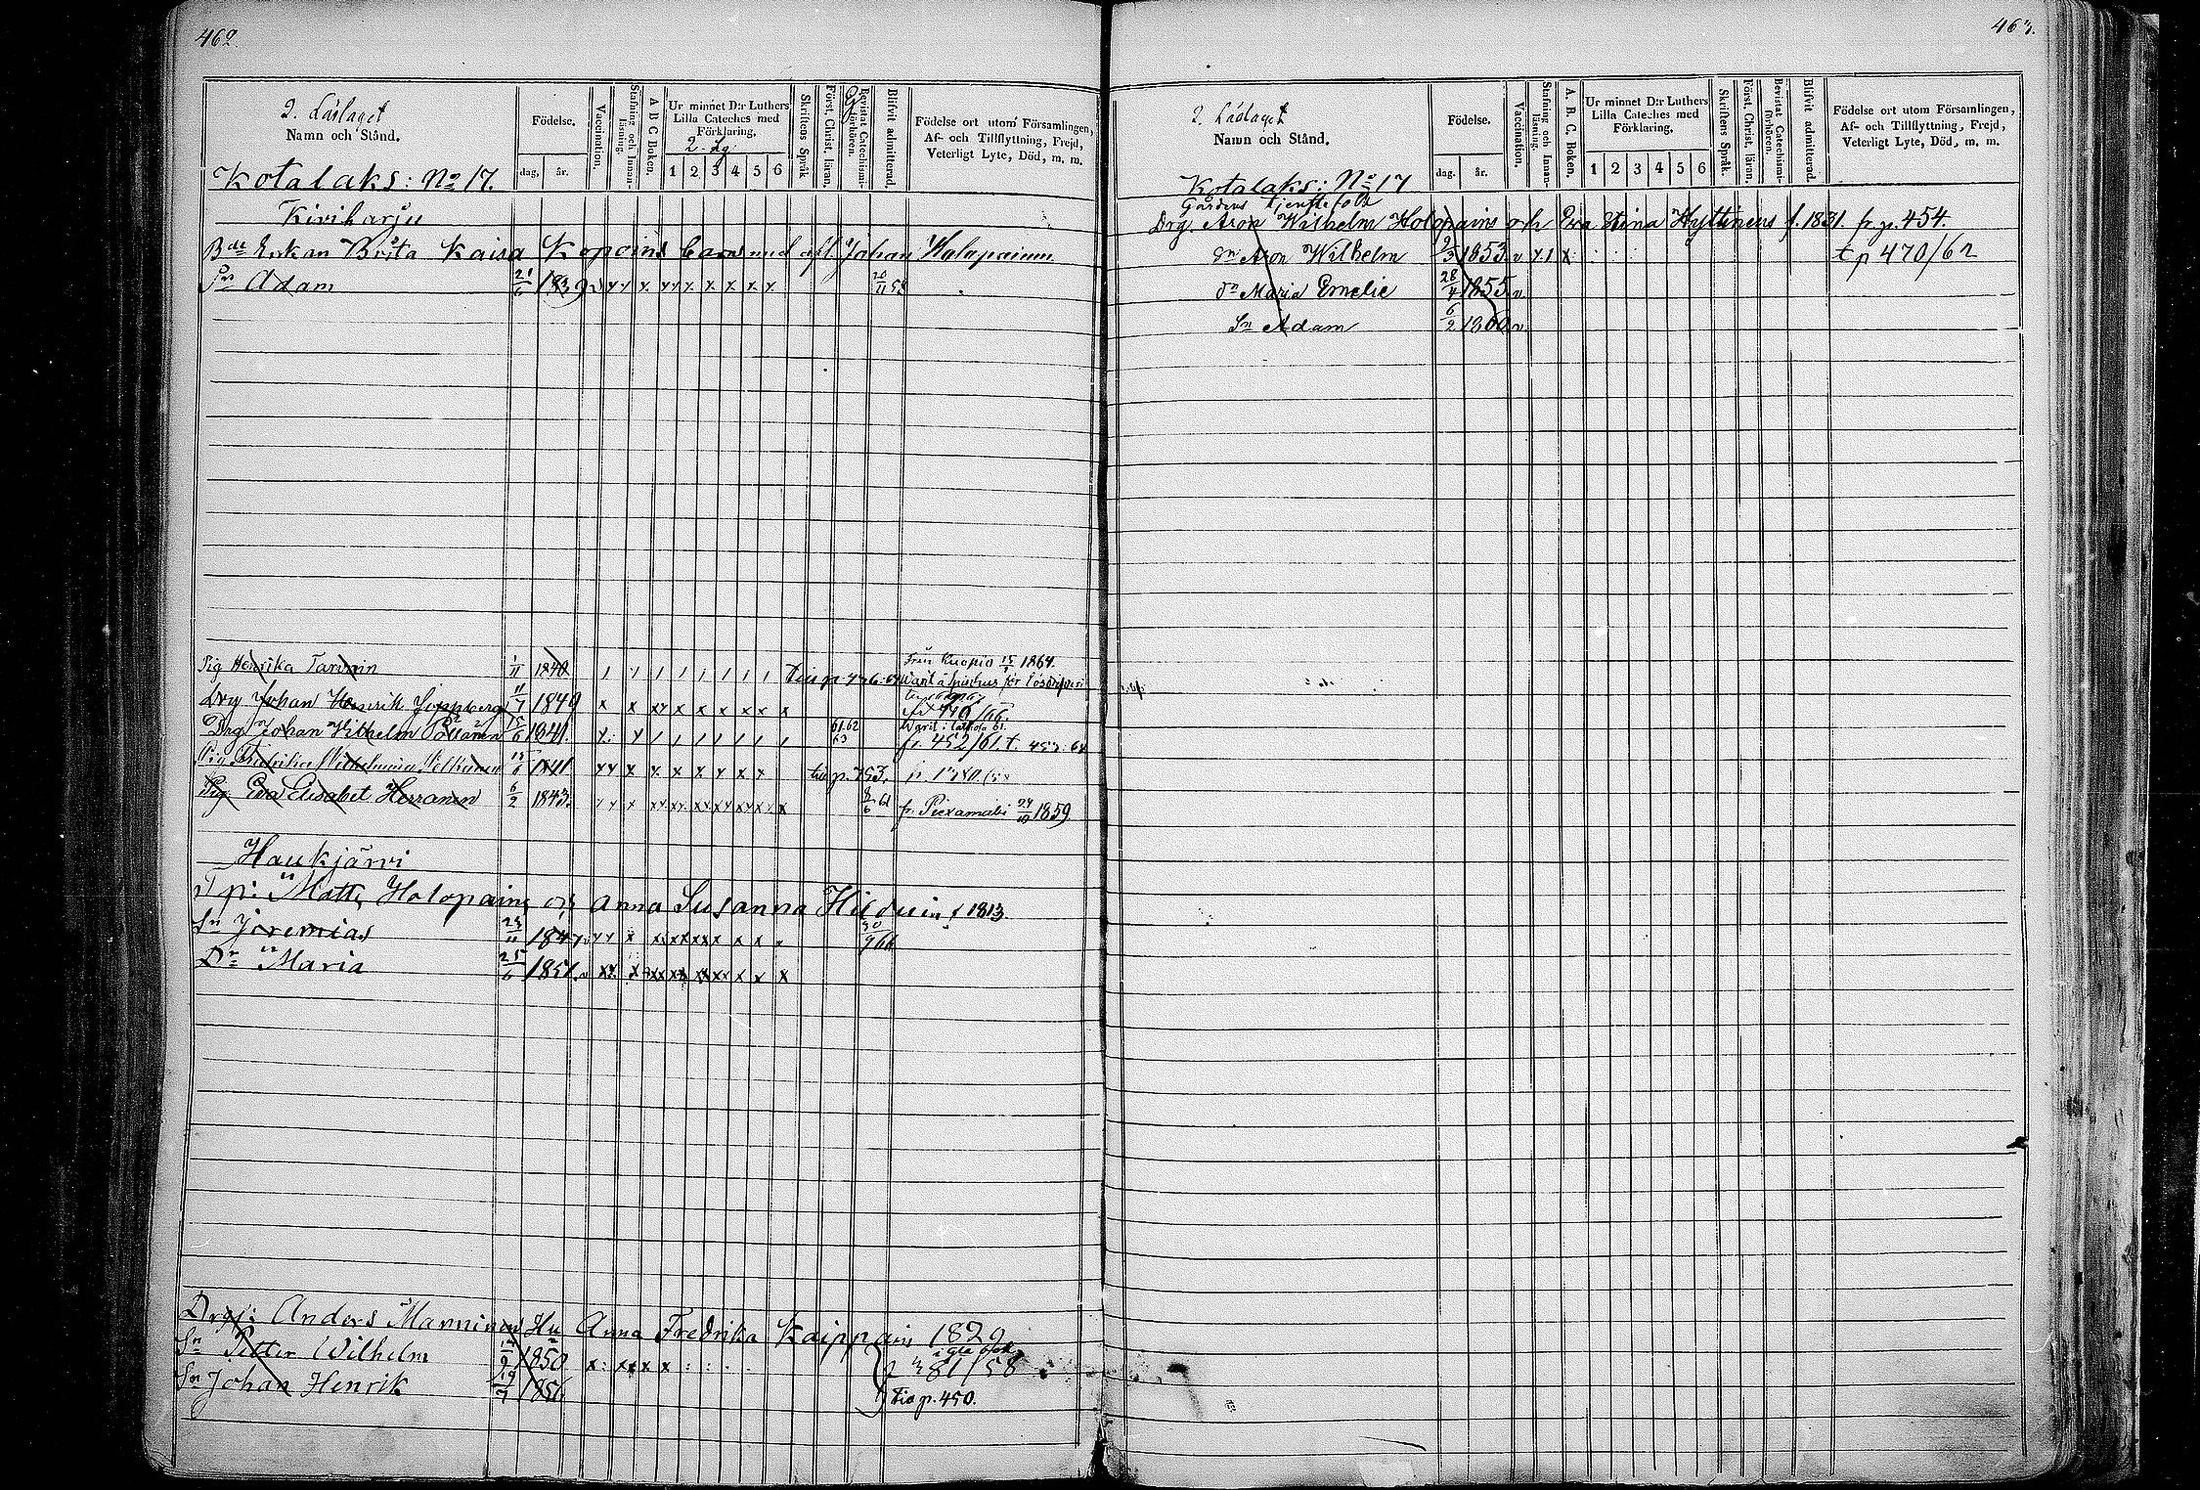 462.
2. Läslaget
Namn och Stånd.
Födelse.
dag, år.
Vaccination.
Stafning och Innanläsning.
A B C Boken.
Ur minnet D:r Luthers
Lilla Cateches med
Förklaring,
2. Lg.
1 2 3 4 5 6
Skriftens Språk
Först. Christ. läran.
Bevistat Catechismiförhören.
Blifvit admitterad.
Födelse ort utom Församlingen,
Af- och Tillflyttning, Frejd,
Veterligt Lyte, Död, m. m.
Kotalaks: No 17.
Kiviharju
Bde Enkan Brita Kaisa Kopoins barn med afl. Johan Holopainen
Sn Adam 21/6 1839 v x x x x x x x x x x 20/11 58
Pig Henrika Tarvain 1/11 1840 Från Kuopio 15/1 1864.
Drg Johan Henrik 11/7 1849 x x x x x x x x x x fr 440/66.
Drg Johan Wilhelm 15/6 1841. 61.62 63 fr. 452/61. t. 457.64
Pig Fredrika Wilhelmina 1841 x x x x x x x x x
Pig Eva Elisabet Herranen 6/2 1843. 8/6 61 fr. Piexamäki 24/10 1859
Haukjärvi
Matts Holopains och Anna Susanna f 1813.
Sn Jeremias 23/11 1847 30/9 66
Dr Maria 25/6 1851. v
Drg: Anders Manninens Hu Anna Fredrika Kaippain 1829
Sn Petter Wilhelm 1850 x : x x x x : : . . 81/58
Sn Johan Henrik 19/7 1856 tio p. 450.
463.
2. Läslaget
Namn och Stånd.
Födelse.
dag. år.
Vaccination.
Stafning och Innanläsning.
A. B. C. Boken.
Ur minnet D:r Luthers
Lilla Cateches med
Förklaring,
1 2 3 4 5 6
Skriftens Språk.
Först. Christ. läran.
Bevistat Catechismiförhören.
Blifvit admitterad.
Födelse ort utom Församlingen,
Af- och Tillflyttning, Frejd,
Veterligt Lyte, Död, m. m.
Kotalaks: No 17
Gårdens tjenstefolk
Drg. Aron Wilhelm Holopains och Eva Stina Hyttinens f. 1831. fr p. 454.
Sn Aron Wilhelm 9/3 1853. v x 1 x tp 470/62
Dr Maria Emelie 28/4 1855. v
Sn Adam 6/2 1860 v